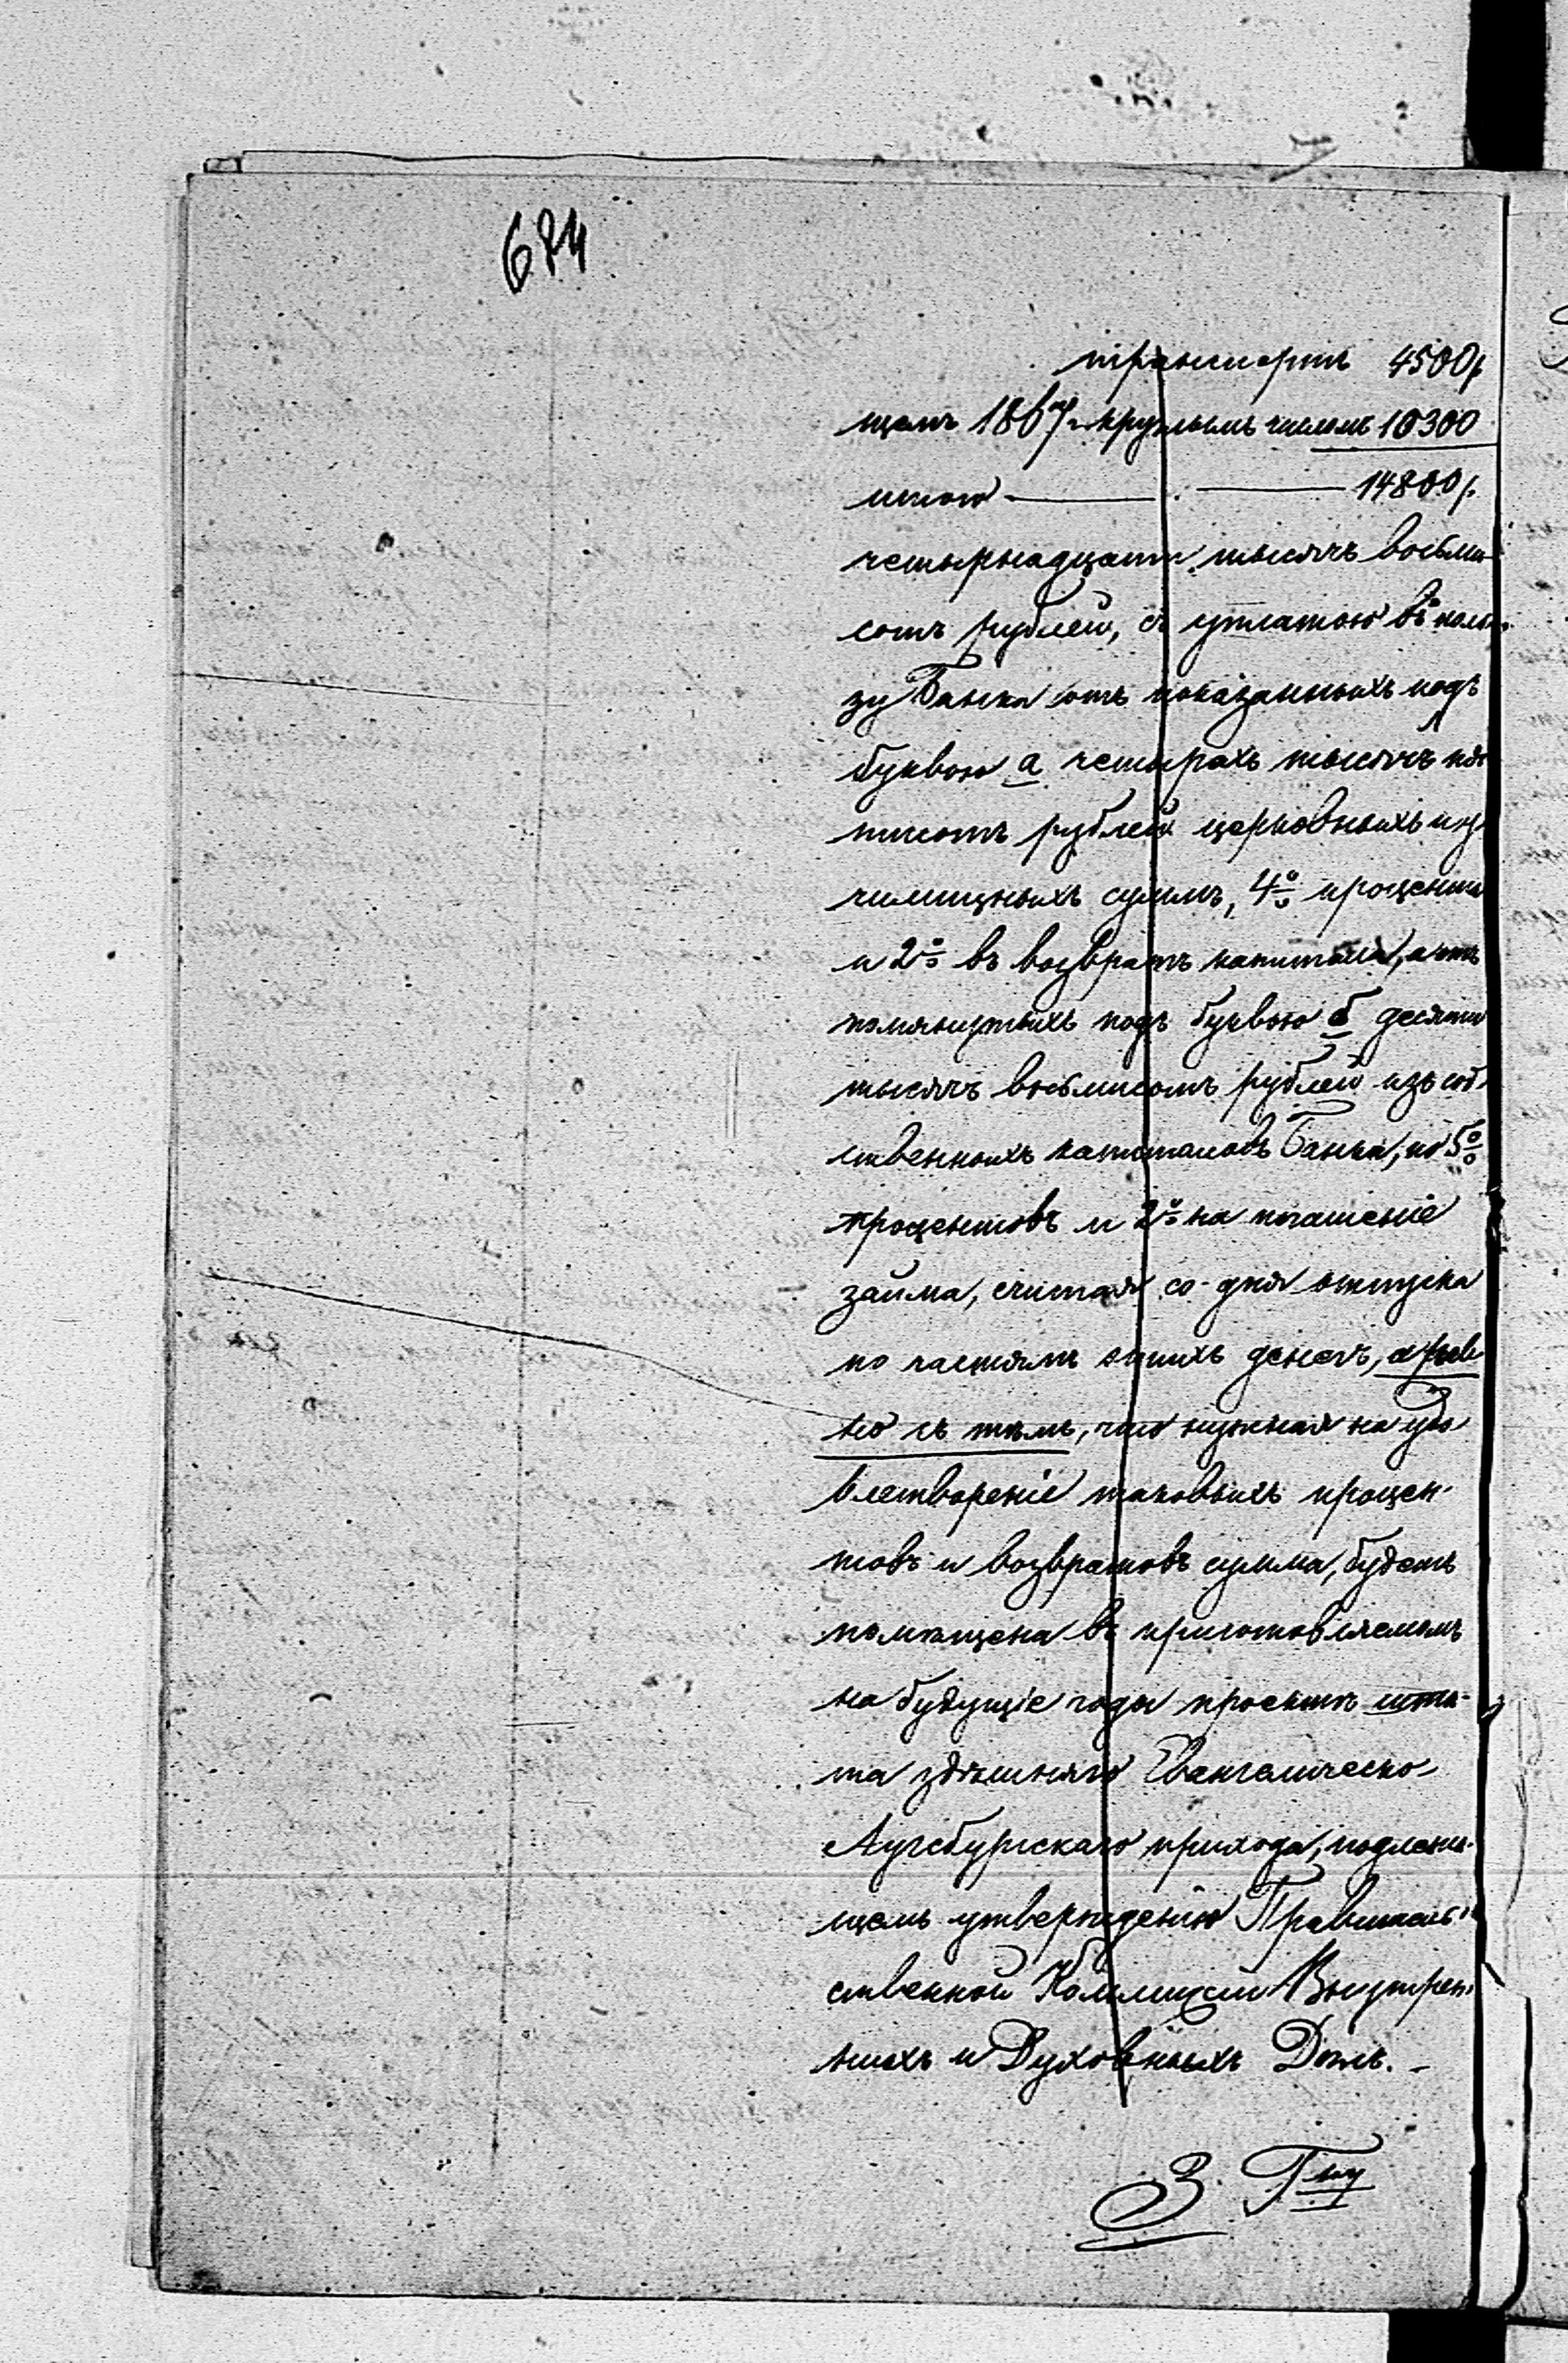 684
транспортъ 4500 р
щемъ 1867 г. круглымъ числомъ 10300
итого — — 14800 р.
четырнадцати тысячъ восьми
сотъ рублей, съ уплатою въ поль-
зу Банка отъ показанныхъ подъ
буквою а четырехъ тысячъ пя
тисотъ рублей церковныхъ и у
чилищныхъ суммъ, 4% процента
и 2% въ возвратъ капитала, а отъ
помянутыхъ подъ буквою б десяти
тысячъ восьмисотъ рублей изъ соб
ственныхъ капиталовъ Банка, по 5%
процентовъ и 2% на погашеніе
займа, считая со дня отпуска
по частямъ этихъ денегъ, а рав
но съ тѣмъ, что нужная на удо
влетвореніе таковыхъ процен-
товъ и возвратовъ сумма, будетъ
помѣщена въ приготовляемомъ
на будущіе годы проектѣ шта-
та здѣшняго Евангелическо
Аугсбургскаго прихода, подлежа-
щемъ утвержденію Правитель
ственной Коммиссіи Внутрен
нихъ и Духовныхъ Дѣлъ. —